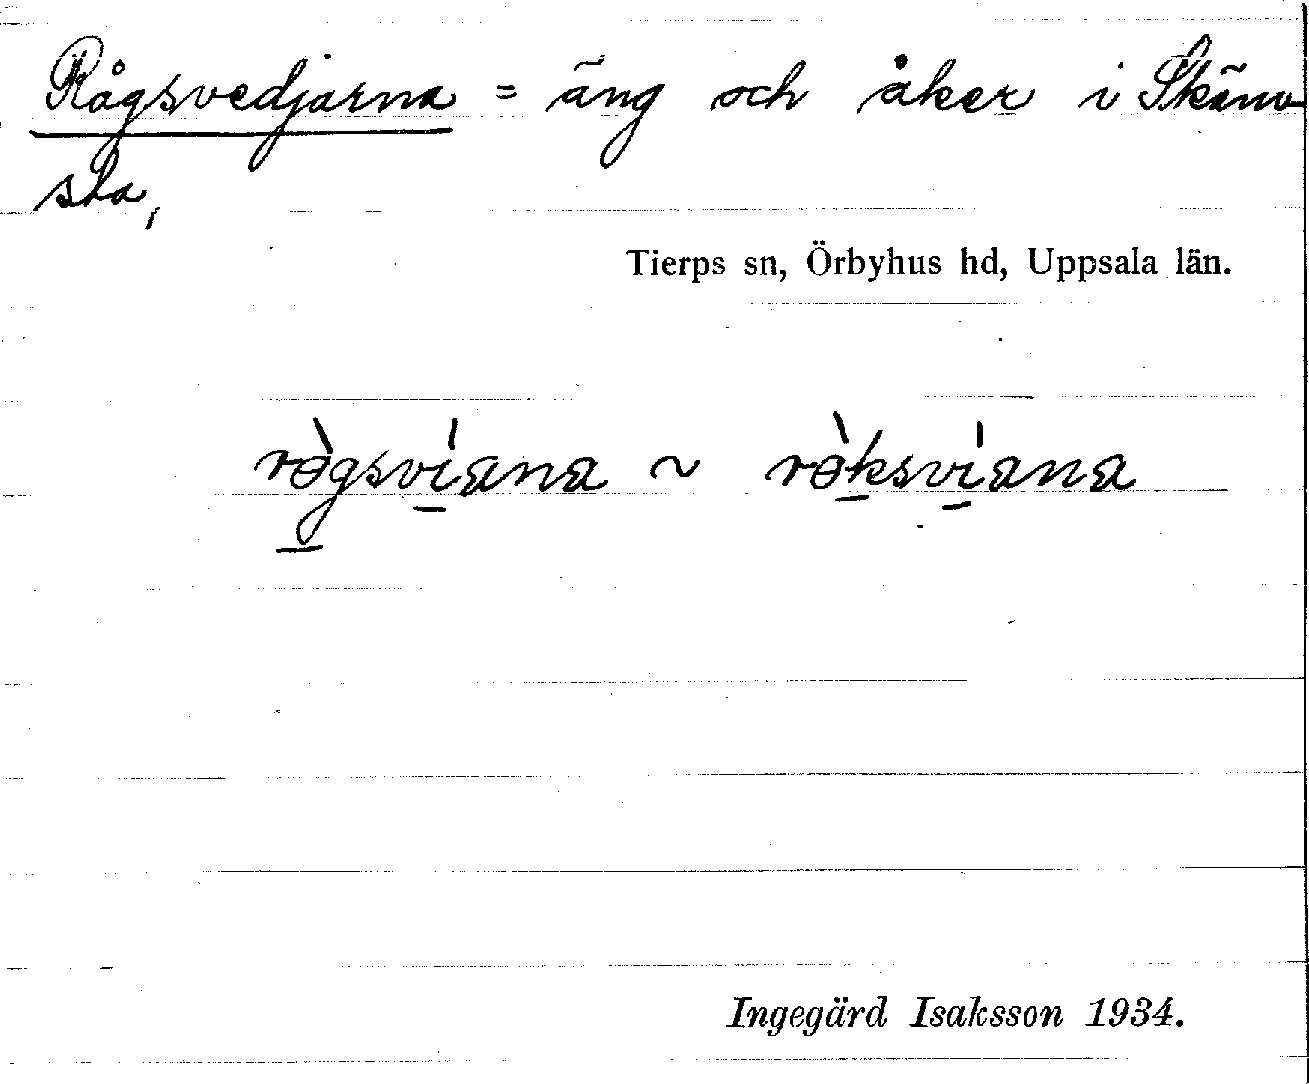 Rågsvedjarna = äng och åker i Skäm-
sta,
Tierps sn, Örbyhus hd, Uppsala län.
rə̀gsvíana ~ rə̀ksvíana
Ingegärd Isaksson 1934.